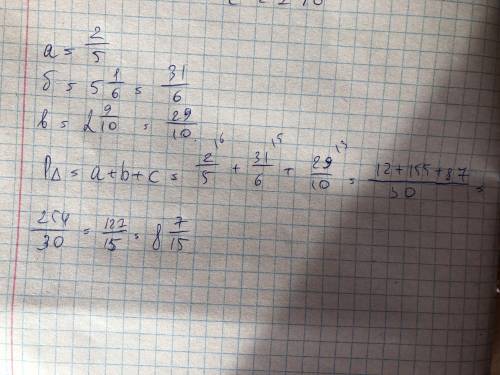 a = 2/5
б = 5 1/6 = 31/6
в = 2 9/10 = 29/10
P△ = a+b+c = 2/5 \6 + 31/6 \5 + 29/10 \3 = 12+155+87/30 =
254/30 = 127/15 = 8 7/15